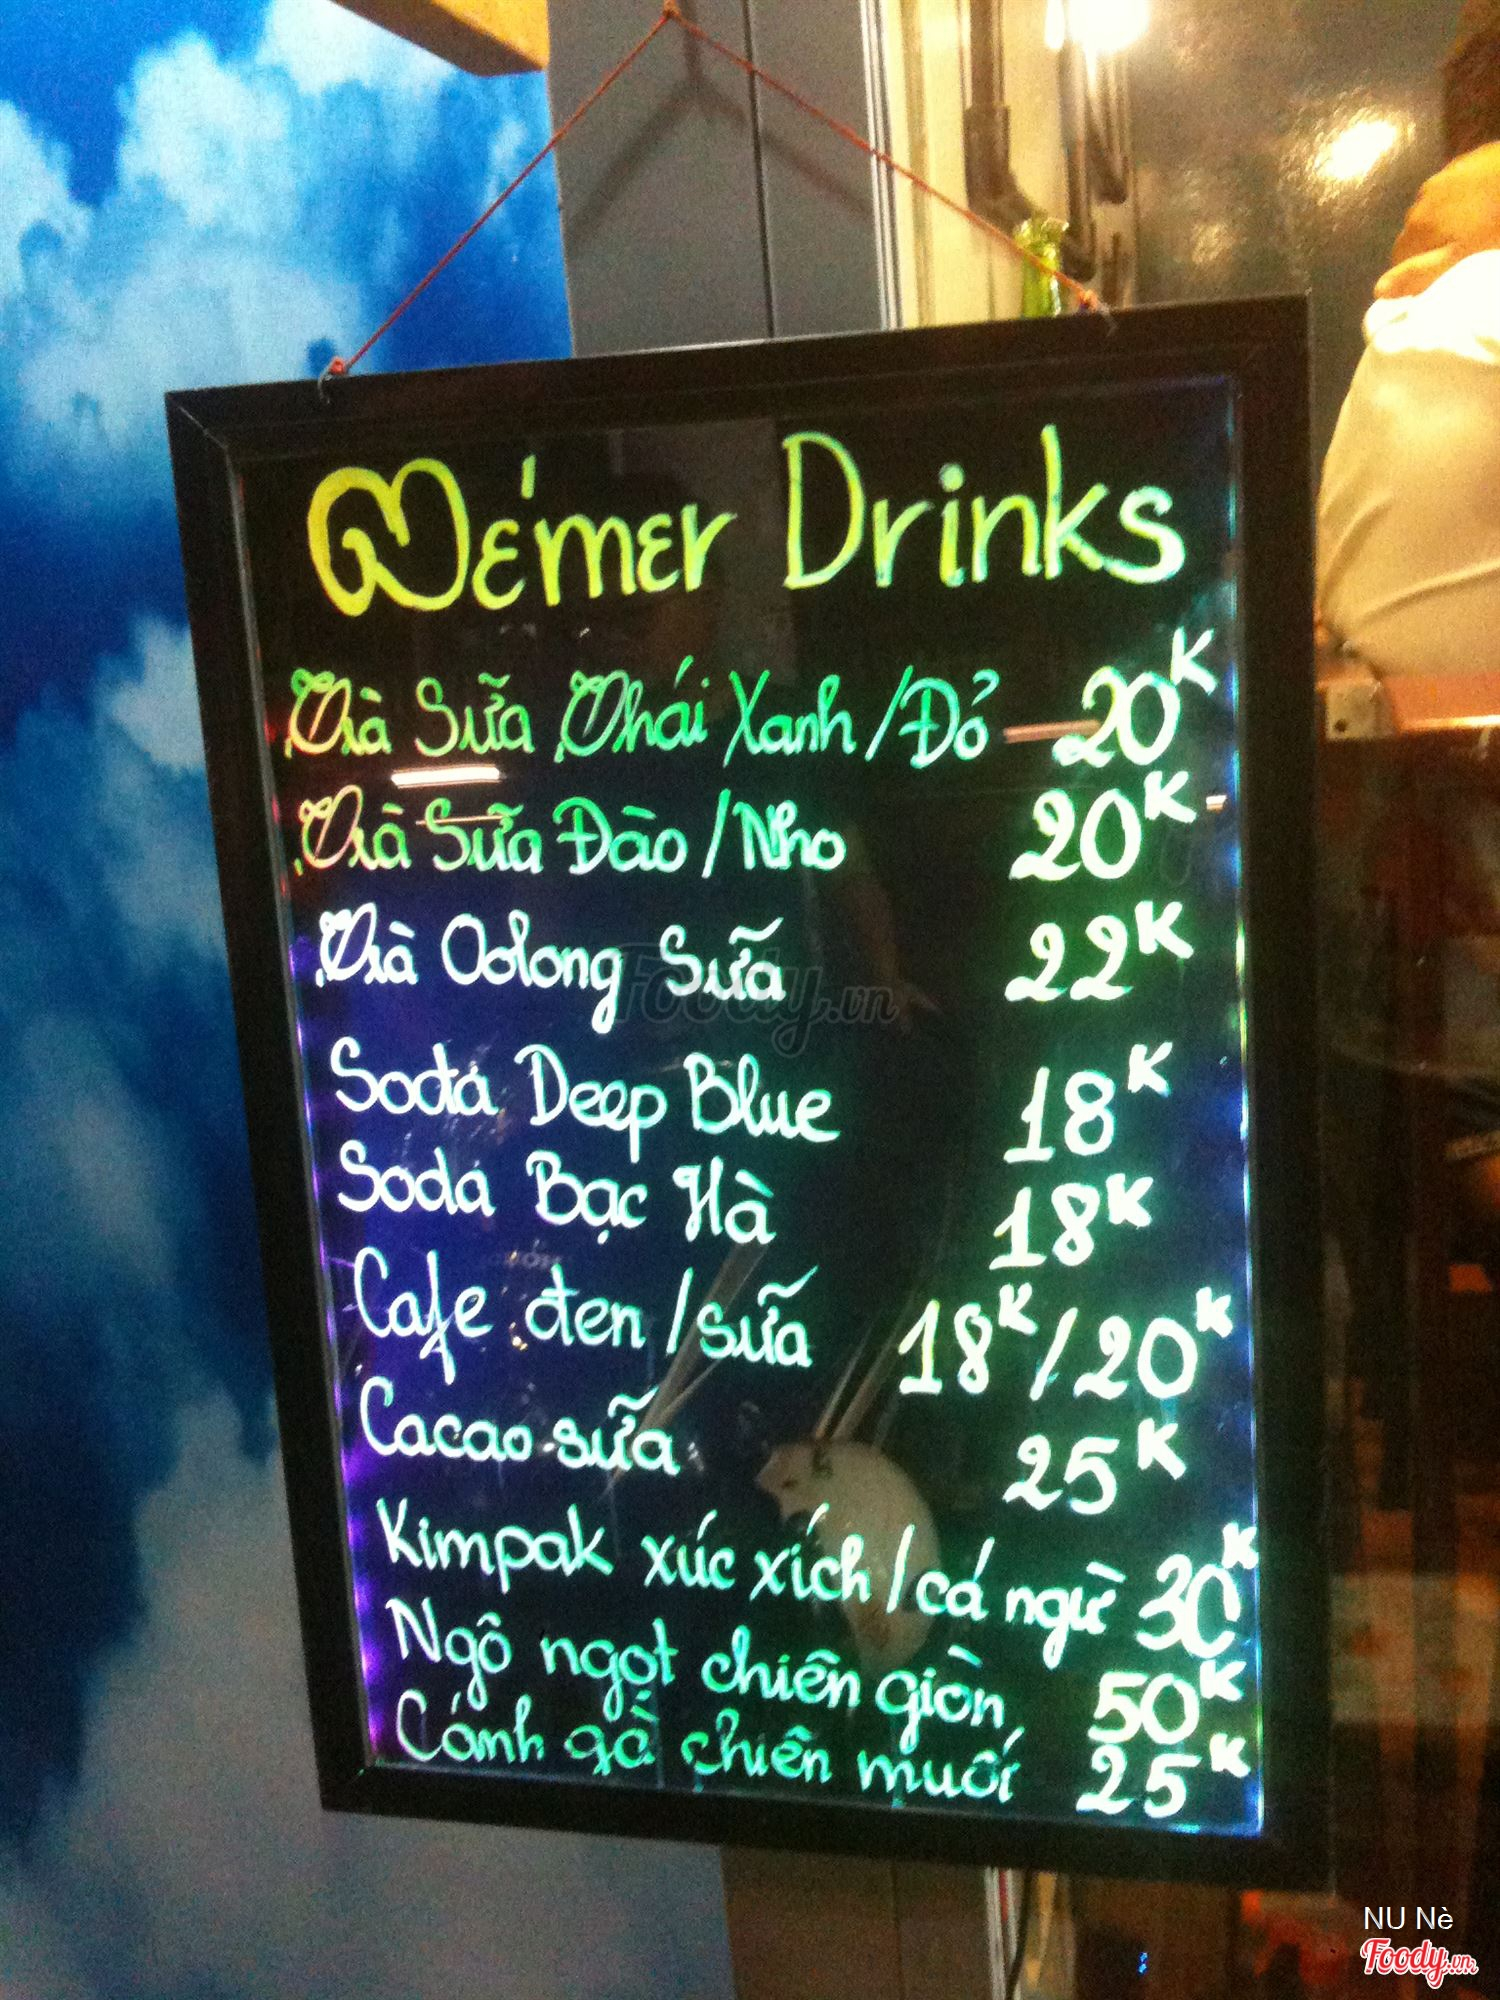 Mémer Drinks
Trà Sữa Thái Xanh/Đỏ 20K
Trà Sữa Đào/Nho 20K
Trà Oolong Sữa 22K
Sođá Deep Blue 18K
Sodá Bạc Hà 18K
Cafe đen/sữa 18K/20K
Cacao sữa 25K
Kimpak xúc xích/cá ngừ 30K
Ngô ngọt chiên giòn 50K
Cánh gà chiên muối 25K
Foody.vn
NU Nè
Foody.vn